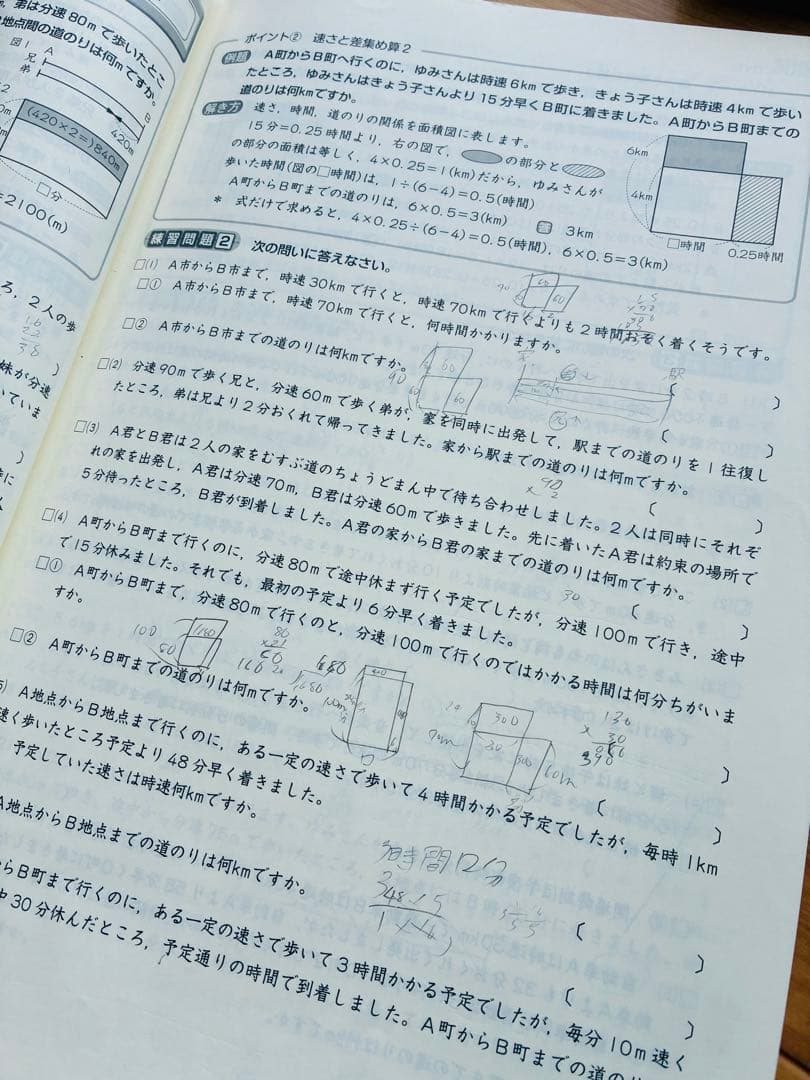 m, 弟は分速80mで歩いたとこ
地点間の道のりは何mですか。
図1 A
兄
弟
B
420m
(420×2=)840m
□分
=2100(m)
ろ, 2人の歩
妹が分速
いていま
ポイント② 速さと差集め算2
例題 A町からB町へ行くのに, ゆみさんは時速6kmで歩き, きょう子さんは時速4kmで歩い
たところ, ゆみさんはきょう子さんより15分早くB町に着きました。A町からB町までの
道のりは何kmですか。
解き方 速さ, 時間, 道のりの関係を面積図に表します。
15分=0.25時間より, 右の図で, の部分と
の部分の面積は等しく, 4×0.25=1(km)だから, ゆみさんが
歩いた時間(図の□時間)は, 1÷(6-4)=0.5(時間)
A町からB町までの道のりは, 6×0.5=3(km) 答 3km
* 式だけで求めると, 4×0.25÷(6-4)=0.5(時間), 6×0.5=3(km)
6km
4km
□時間
0.25時間
練習問題2 次の問いに答えなさい。
□(1) A市からB市まで, 時速30kmで行くと, 時速70kmで行くよりも2時間おそく着くそうです。
□① A市からB市まで, 時速70kmで行くと, 何時間かかりますか。
( )
□② A市からB市までの道のりは何kmですか。
( )
□(2) 分速90mで歩く兄と, 分速60mで歩く弟が, 家を同時に出発して, 駅までの道のりを1往復し
たところ, 弟は兄より2分おくれて帰ってきました。家から駅までの道のりは何mですか。
( )
□(3) A君とB君は2人の家をむすぶ道のちょうどまん中で待ち合わせしました。2人は同時にそれぞ
れの家を出発し, A君は分速70m, B君は分速60mで歩きました。先に着いたA君は約束の場所で
5分待ったところ, B君が到着しました。A君の家からB君の家までの道のりは何mですか。
( )
□(4) A町からB町まで行くのに, 分速80mで途中休まず行く予定でしたが, 分速100mで行き, 途中
で15分休みました。それでも, 最初の予定より6分早く着きました。
□① A町からB町まで, 分速80mで行くのと, 分速100mで行くのではかかる時間は何分ちがいま
すか。
( )
□② A町からB町までの道のりは何mですか。
( )
5) A地点からB地点まで行くのに, ある一定の速さで歩いて4時間かかる予定でしたが, 毎時1km
速く歩いたところ予定より48分早く着きました。
予定していた速さは時速何kmですか。
( )
A地点からB地点までの道のりは何kmですか。
( )
からB町まで行くのに, ある一定の速さで歩いて3時間かかる予定でしたが, 毎分10m速く
中30分休んだところ, 予定通りの時間で到着しました。A町からB町までの道の